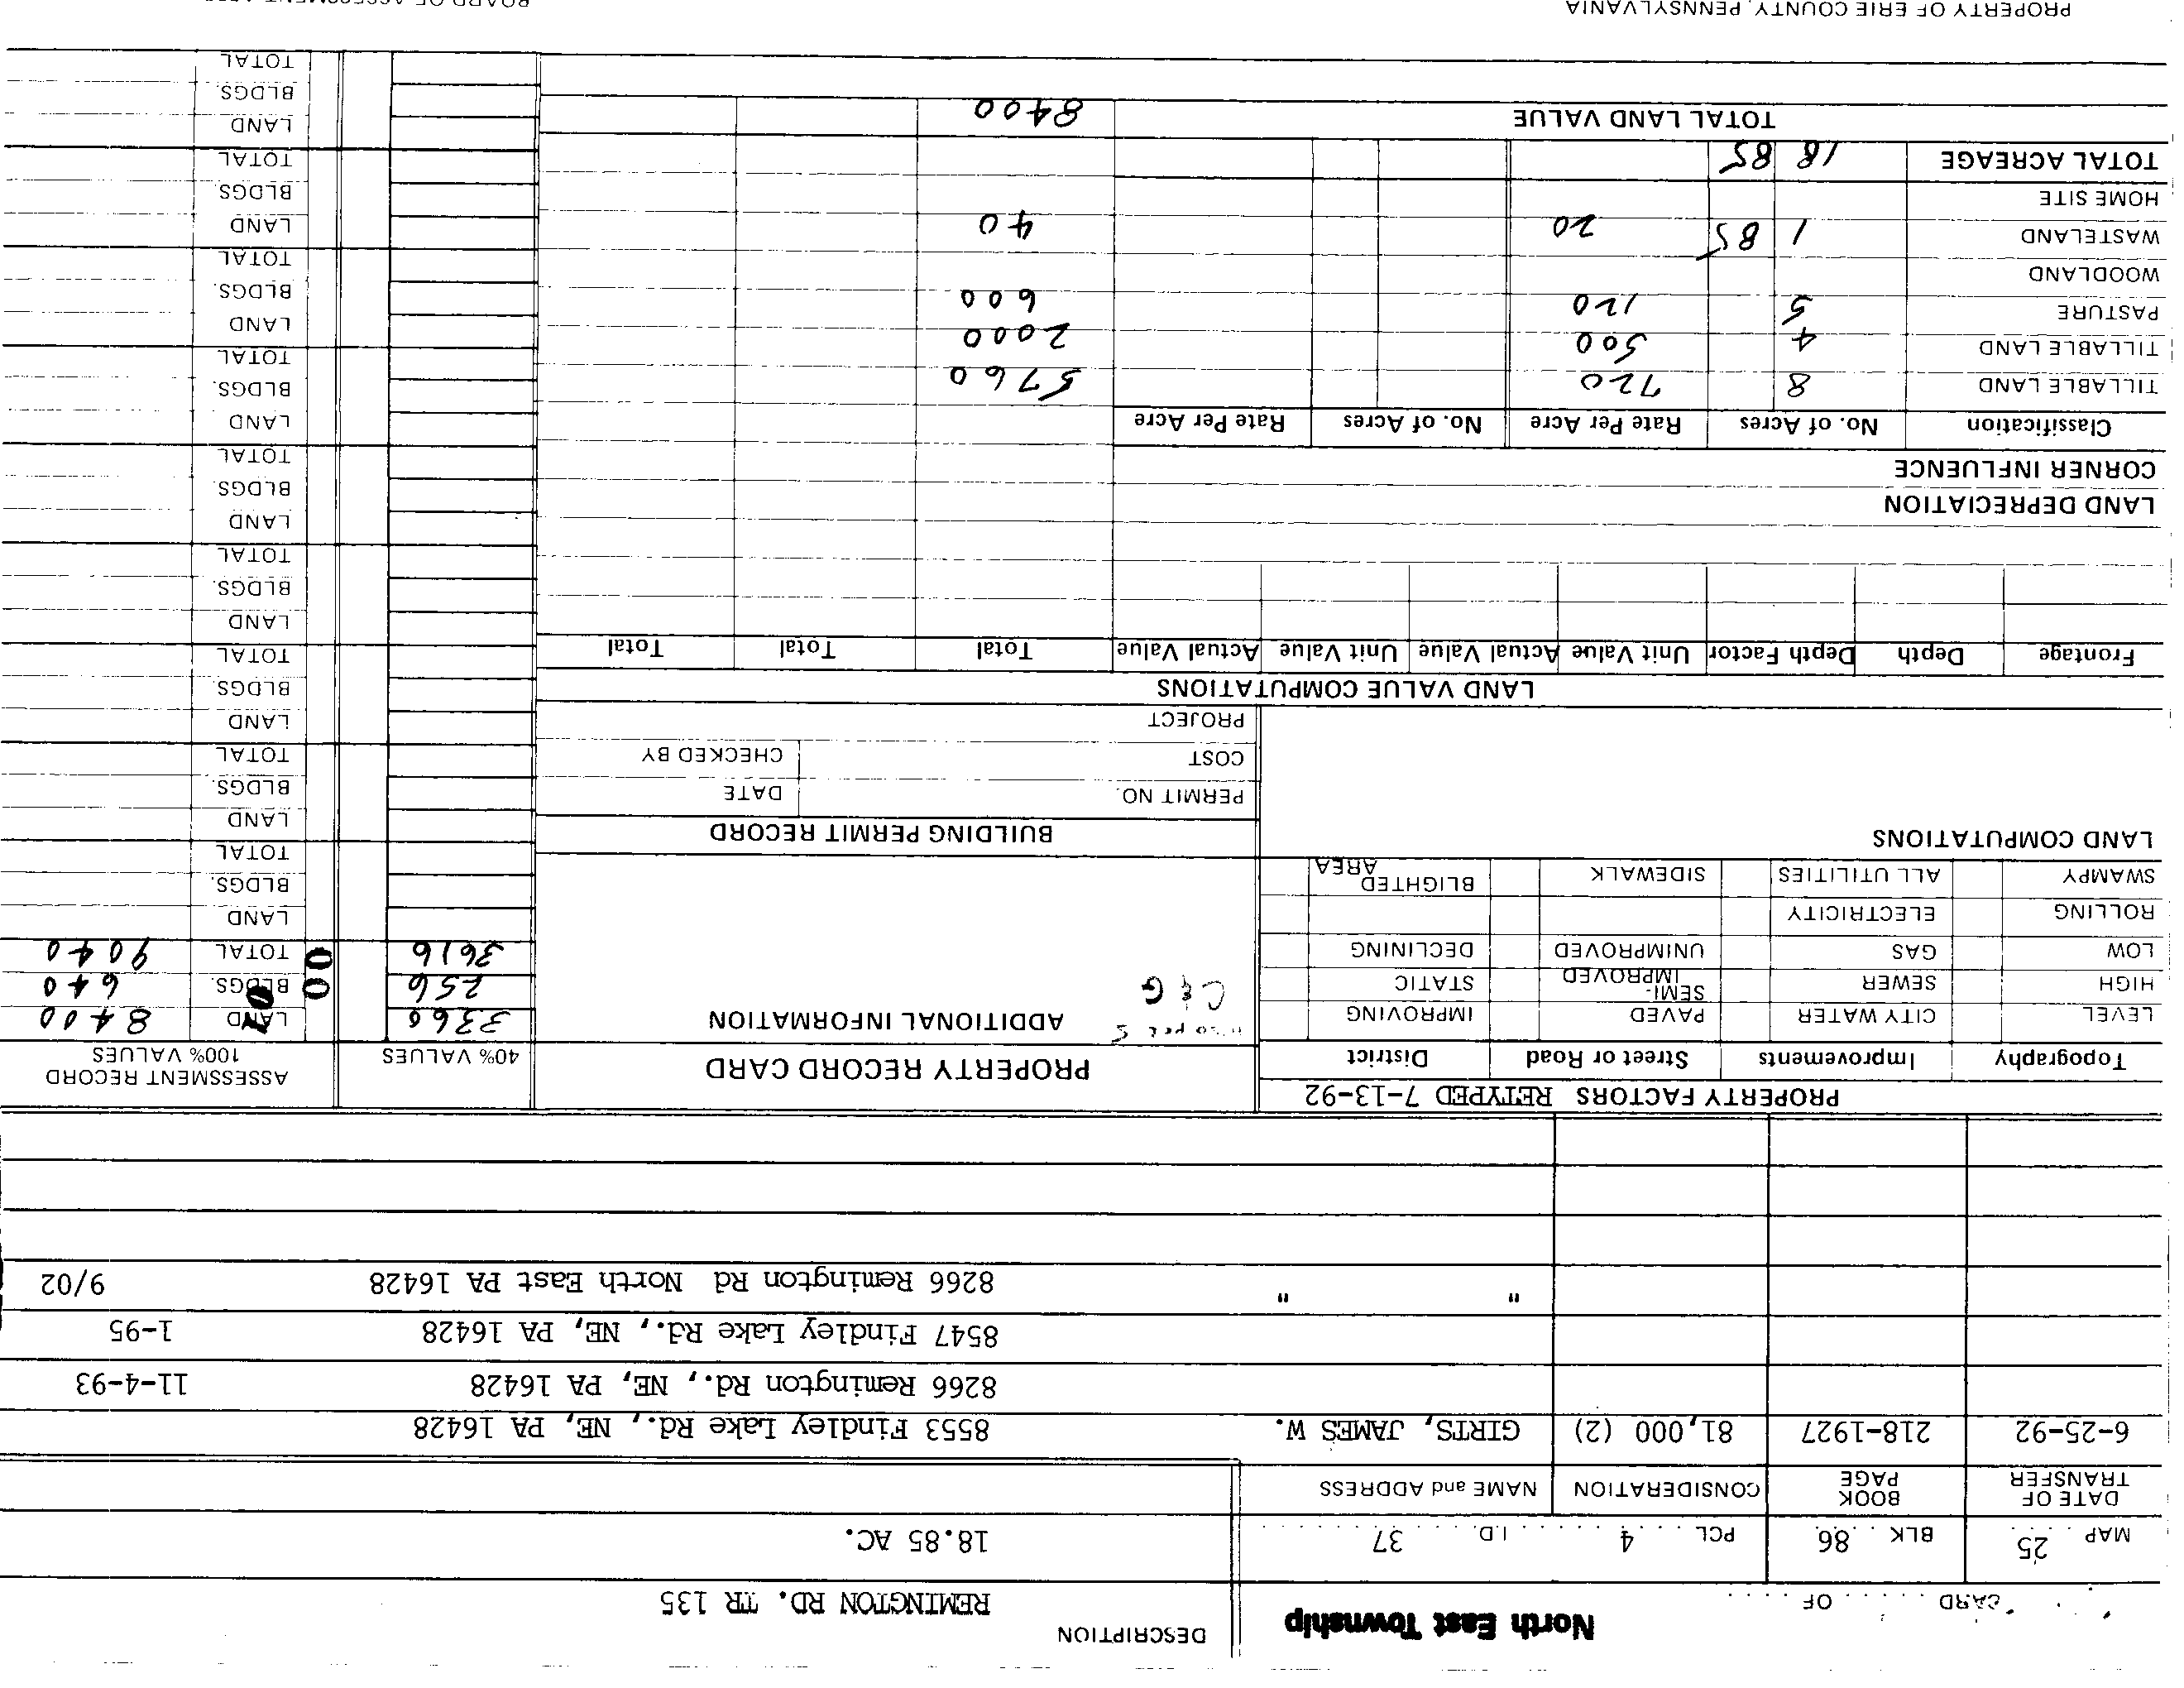 CARD . . . . . OF . . . .
North East Township
DESCRIPTION
REMINGTON RD. TR 135
MAP 25 BLK 86 PCL. 4 I.D. 37
18.85 AC.
DATE OF TRANSFER BOOK PAGE CONSIDERATION NAME and ADDRESS
6-25-92 218-1927 81,000 (2) GIRTS, JAMES W. 8553 Findley Lake Rd., NE, PA 16428
8266 Remington Rd., NE, PA 16428 11-4-93
8547 Findley Lake Rd., NE, PA 16428 1-95
" " 8266 Remington Rd North East PA 16428 9/02
PROPERTY FACTORS RETYPED 7-13-92
Topography Improvements Street or Road District
LEVEL CITY WATER PAVED IMPROVING
HIGH SEWER SEMI-IMPROVED STATIC
LOW GAS UNIMPROVED DECLINING
ROLLING ELECTRICITY
SWAMPY ALL UTILITIES SIDEWALK BLIGHTED AREA
LAND COMPUTATIONS
PROPERTY RECORD CARD
ADDITIONAL INFORMATION
C & G
BUILDING PERMIT RECORD
PERMIT NO. DATE
COST CHECKED BY
PROJECT
40% VALUES ASSESSMENT RECORD 100% VALUES
3360 LAND 8400
256 BLDGS. 640
3616 TOTAL 9040
LAND
BLDGS.
TOTAL
LAND
BLDGS.
TOTAL
LAND
BLDGS
TOTAL
LAND
BLDGS.
TOTAL
LAND
BLDGS
TOTAL
LAND
BLDGS.
TOTAL
LAND
BLDGS.
TOTAL
LAND
BLDGS
TOTAL
LAND
BLDGS.
TOTAL
LAND VALUE COMPUTATIONS
Frontage Depth Depth Factor Unit Value Actual Value Unit Value Actual Value Total Total Total
LAND DEPRECIATION
CORNER INFLUENCE
Classification No. of Acres Rate Per Acre No. of Acres Rate Per Acre
TILLABLE LAND 8 720 5760
TILLABLE LAND 4 500 2000
PASTURE 5 120 600
WOODLAND
WASTELAND 1 85 20 40
HOME SITE
TOTAL ACREAGE 18 85
TOTAL LAND VALUE 8400
PROPERTY OF ERIE COUNTY, PENNSYLVANIA